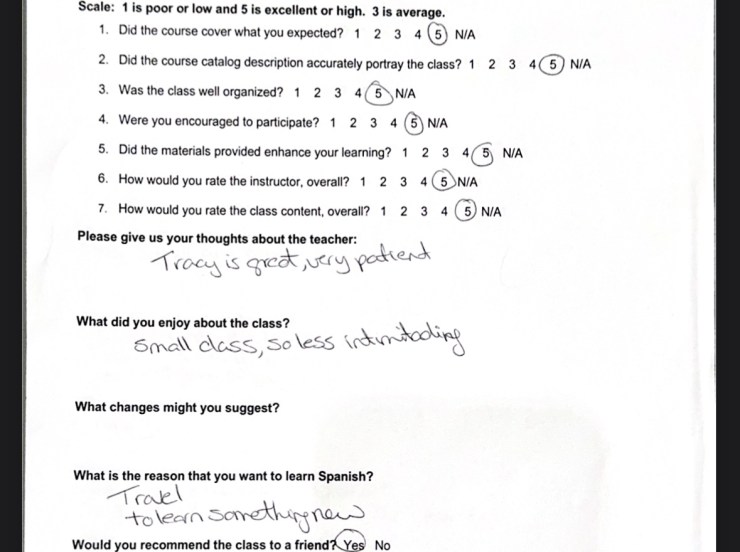 Scale: 1 is poor or low and 5 is excellent or high. 3 is average.
1. Did the course cover what you expected? 1 2 3 4 5 N/A
2. Did the course catalog description accurately portray the class? 1 2 3 4 5 N/A
3. Was the class well organized? 1 2 3 4 5 N/A
4. Were you encouraged to participate? 1 2 3 4 5 N/A
5. Did the materials provided enhance your learning? 1 2 3 4 5 N/A
6. How would you rate the instructor, overall? 1 2 3 4 5 N/A
7. How would you rate the class content, overall? 1 2 3 4 5 N/A
Please give us your thoughts about the teacher:
Tracy is great, very patient
What did you enjoy about the class?
Small class, so less intimitading
What changes might you suggest?
What is the reason that you want to learn Spanish?
Travel
to learn something new
Would you recommend the class to a friend? Yes No